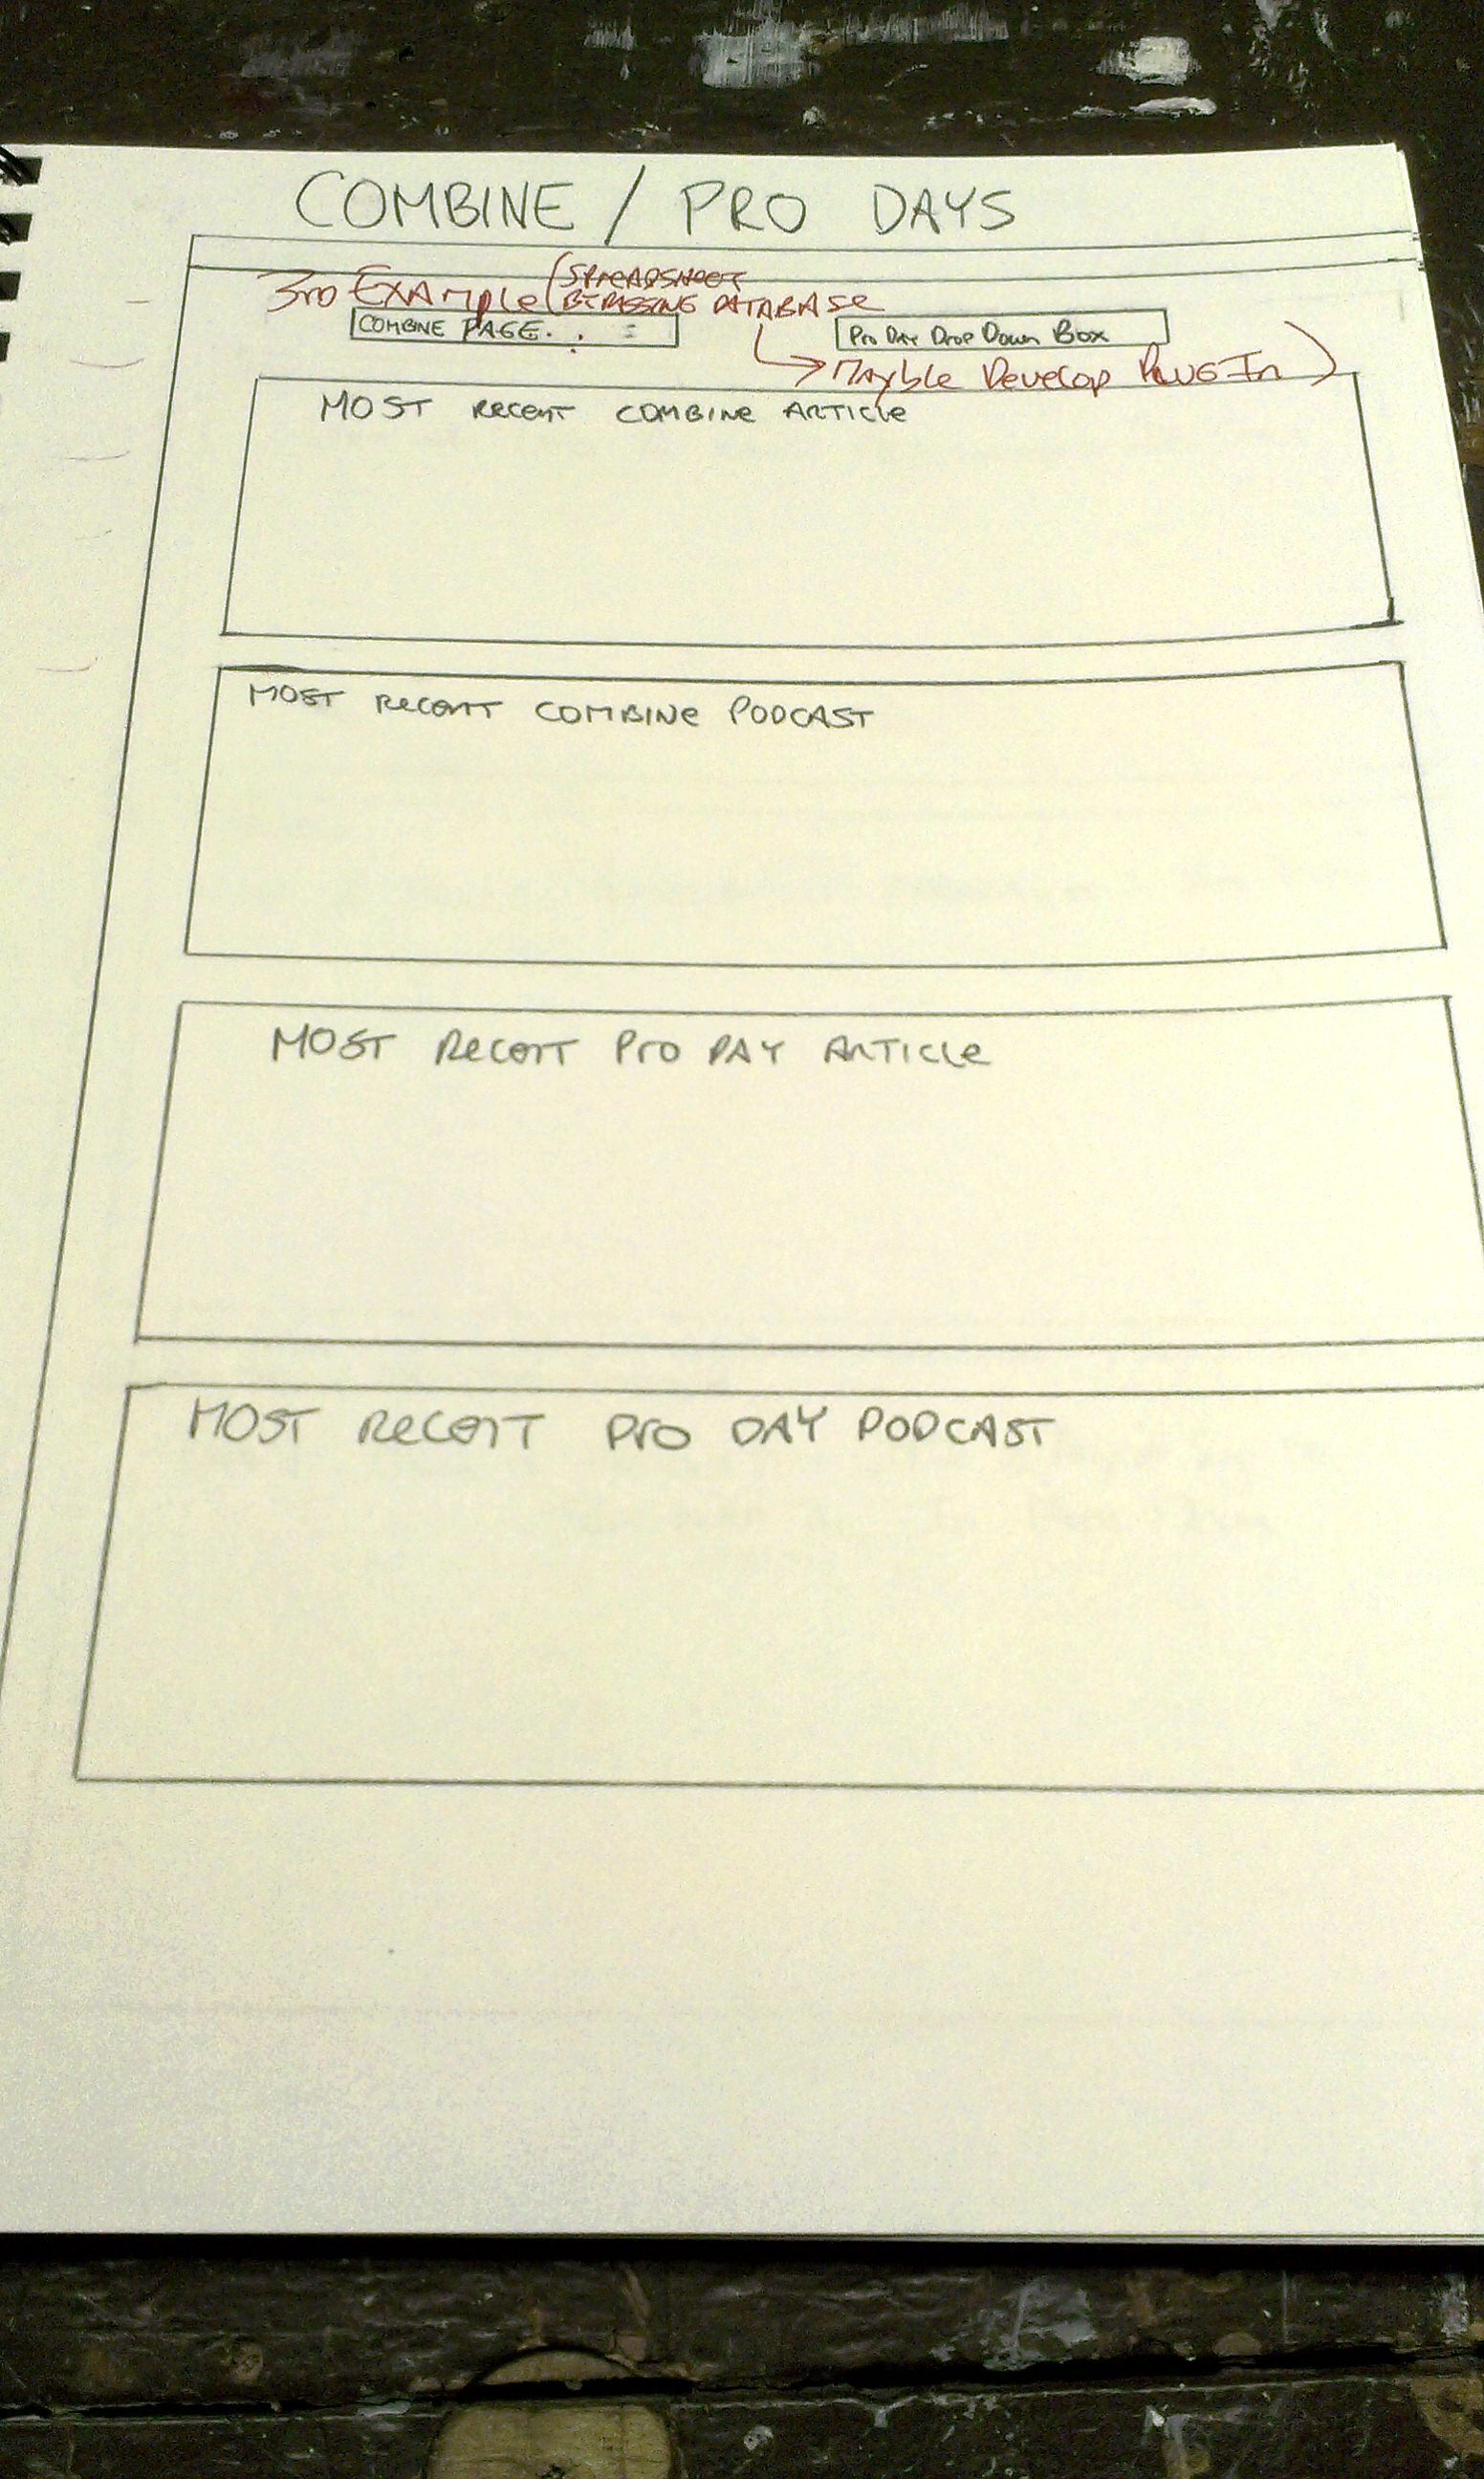 COMBINE / PRO DAYS
3rd Example (SPREADSHEET
BYPASSING DATABASE
COMBINE PAGE. . :
Pro Day Drop Down Box
Mayble Develop Plug-In )
MOST RECENT COMBINE ARTICLE
MOST RECENT COMBINE PODCAST
MOST RECENT PRO DAY ARTICLE
MOST RECENT PRO DAY PODCAST